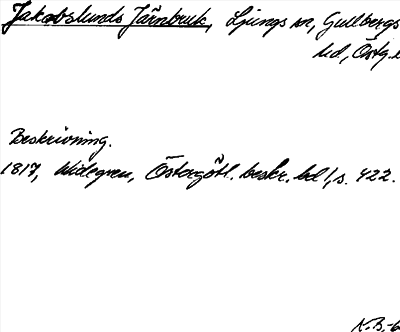 Jakobslunds Järnbruk, Ljungs sn, Gullbergs
hd, Östg.
Beskrivning.
1817, Widegren, Östergötl. beskr. bd 1, s. 422.
K.B.